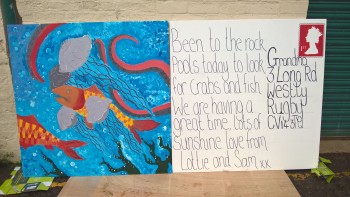 Been to the rock
Pools today to look
for Crabs and fish
we are having a
great time. Lots of
Sunshine love from
Lottie and Sam xx
Grandma
3 Long Rd
Westby
Rugby